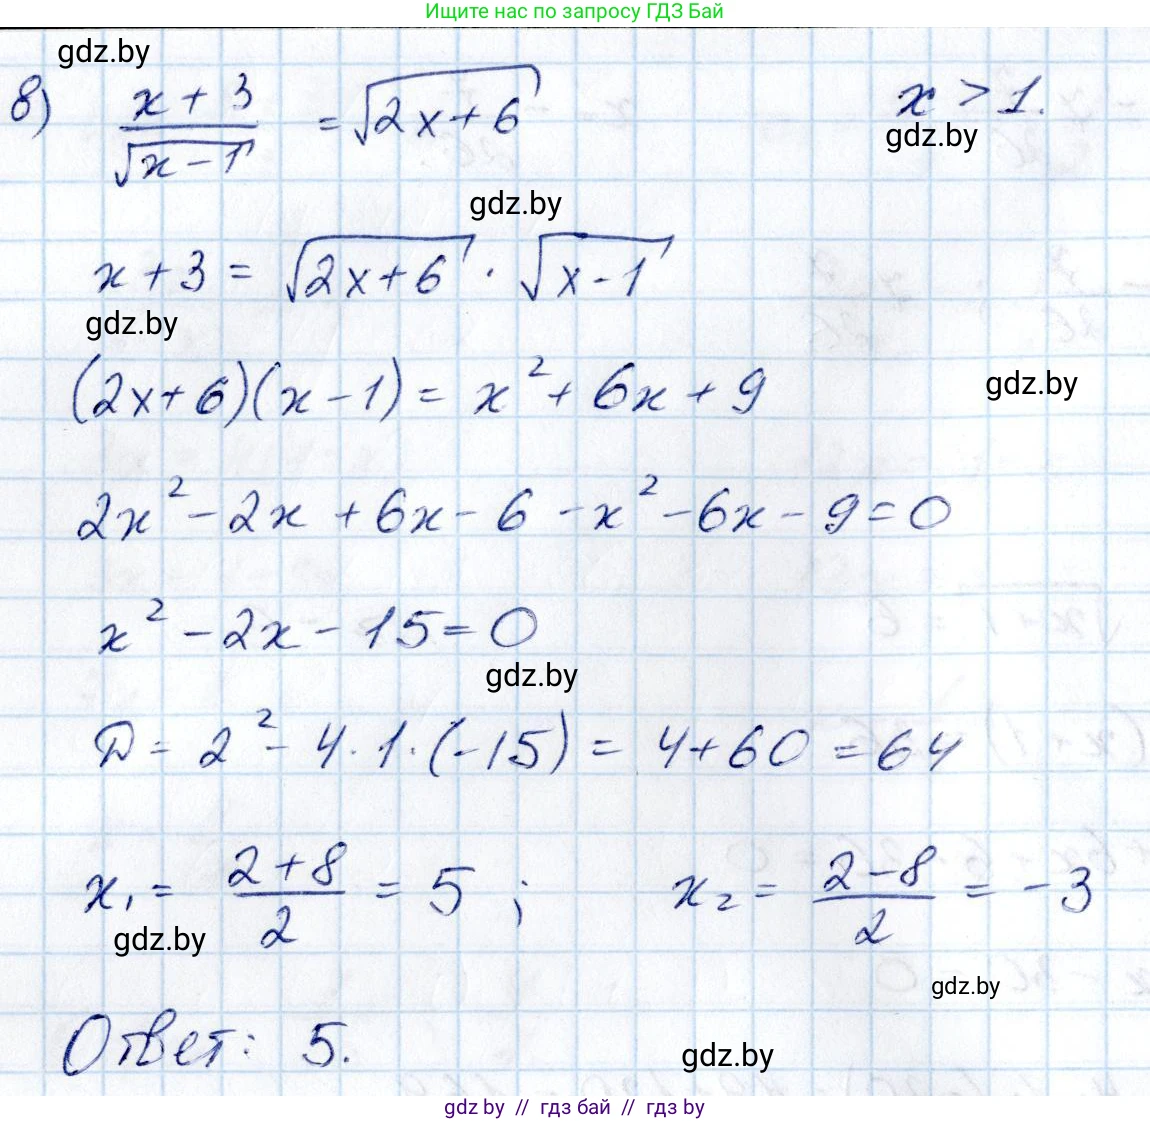 Ищите нас по запросу ГДЗ Бай
gdz.by
8) (x + 3)/√(x − 1) = √(2x + 6)   x > 1.
gdz.by
gdz.by
x + 3 = √(2x + 6) · √(x − 1)
gdz.by
(2x + 6)(x − 1) = x² + 6x + 9
gdz.by
2x² − 2x + 6x − 6 − x² − 6x − 9 = 0
x² − 2x − 15 = 0
gdz.by
D = 2² − 4 · 1 · (−15) = 4 + 60 = 64
x₁ = (2 + 8)/2 = 5 ;   x₂ = (2 − 8)/2 = −3
gdz.by
gdz.by
Ответ: 5.
gdz.by
gdz by // гдз бай // гдз by